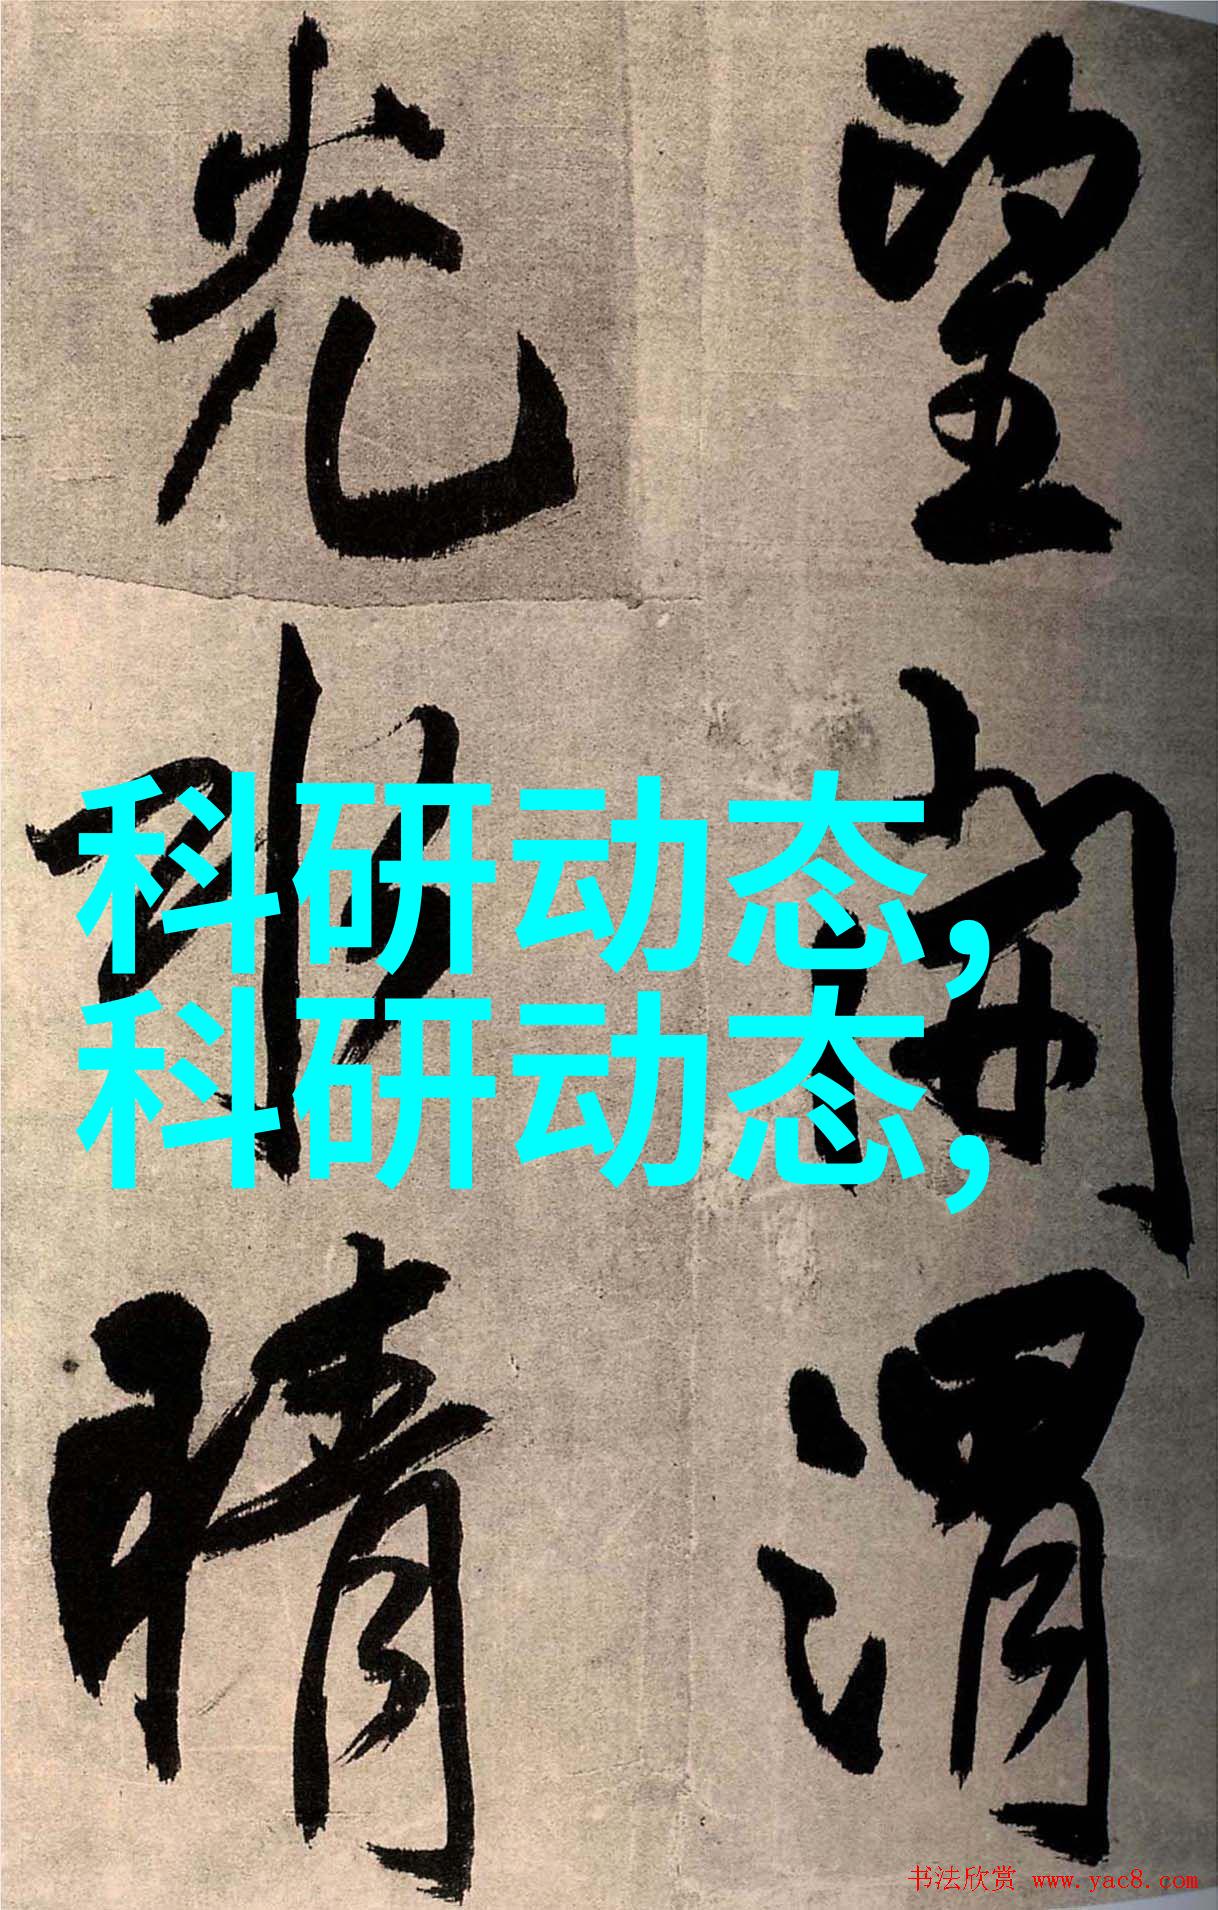 望開渭
光晴
科研动态,
科研动态,
书法欣赏 www.yac8.com